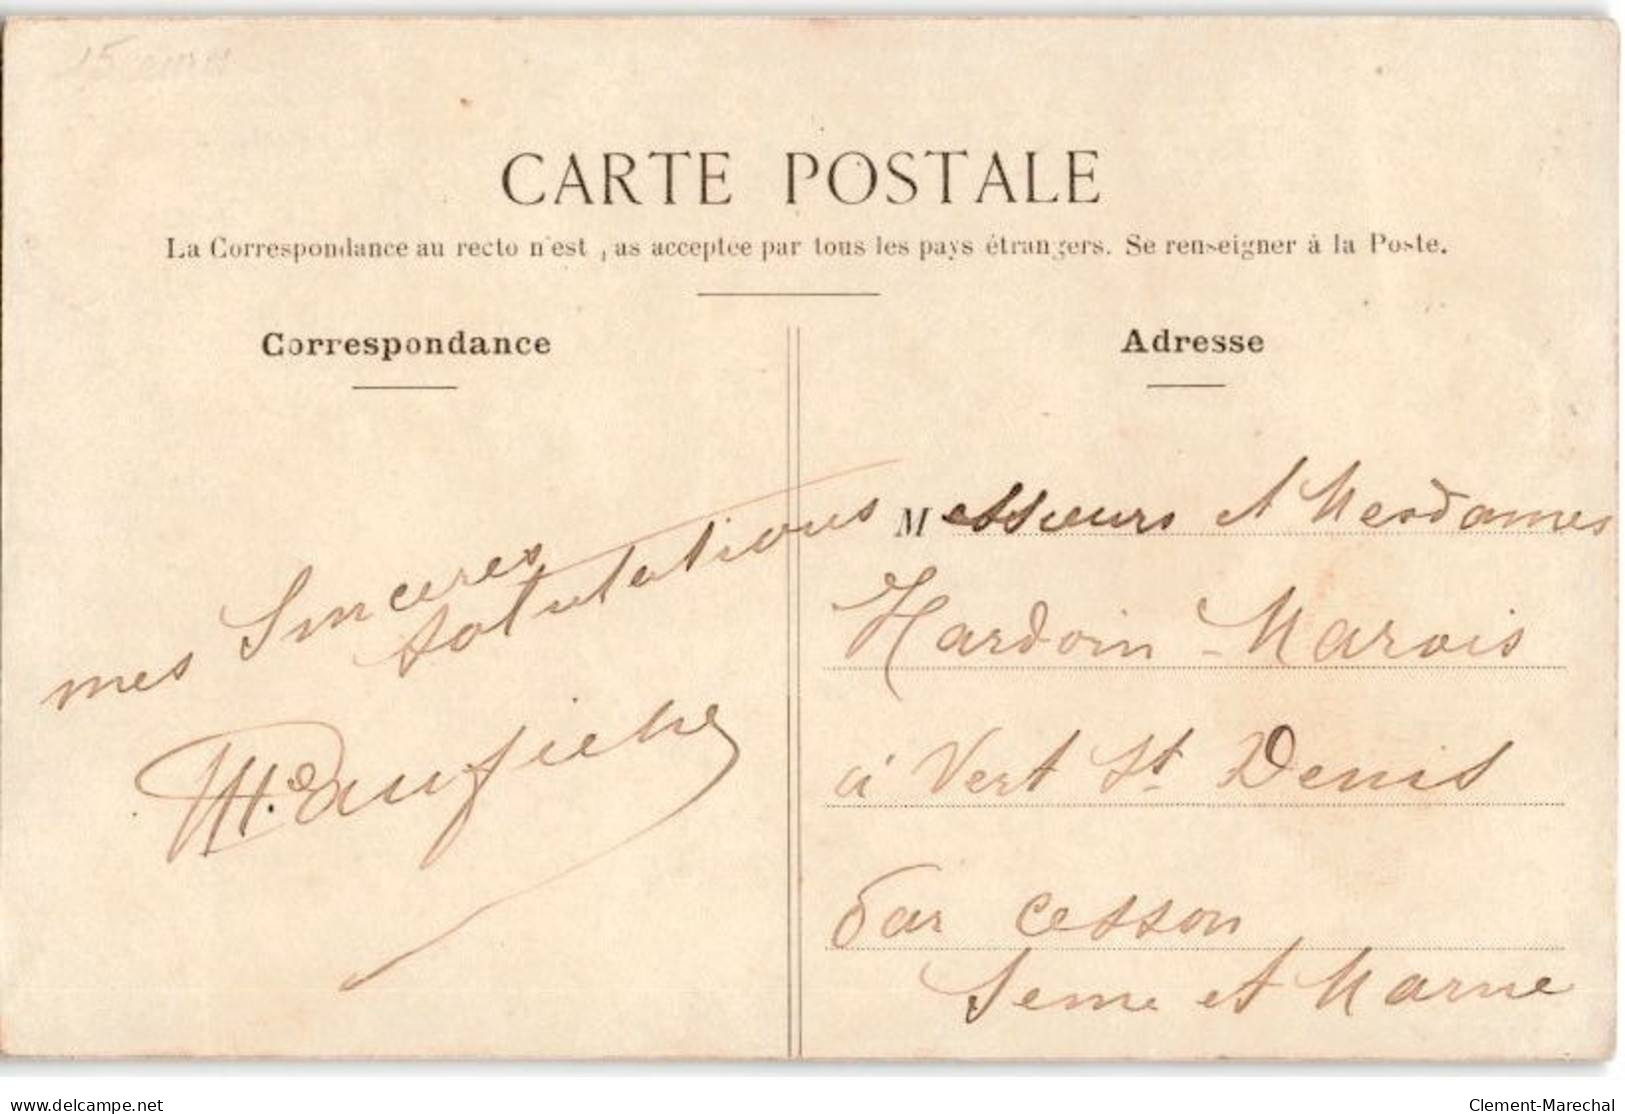 CARTE POSTALE
La Correspondance au recto n'est pas acceptée par tous les pays étrangers. Se renseigner à la Poste.
Correspondance
mes Sincères
salutations
Adresse
Messieurs et Mesdames
Hardoin - Marois
à Vert St Denis
Par Cesson
Seine et Marne
www.delcampe.net
Clement-Marechal